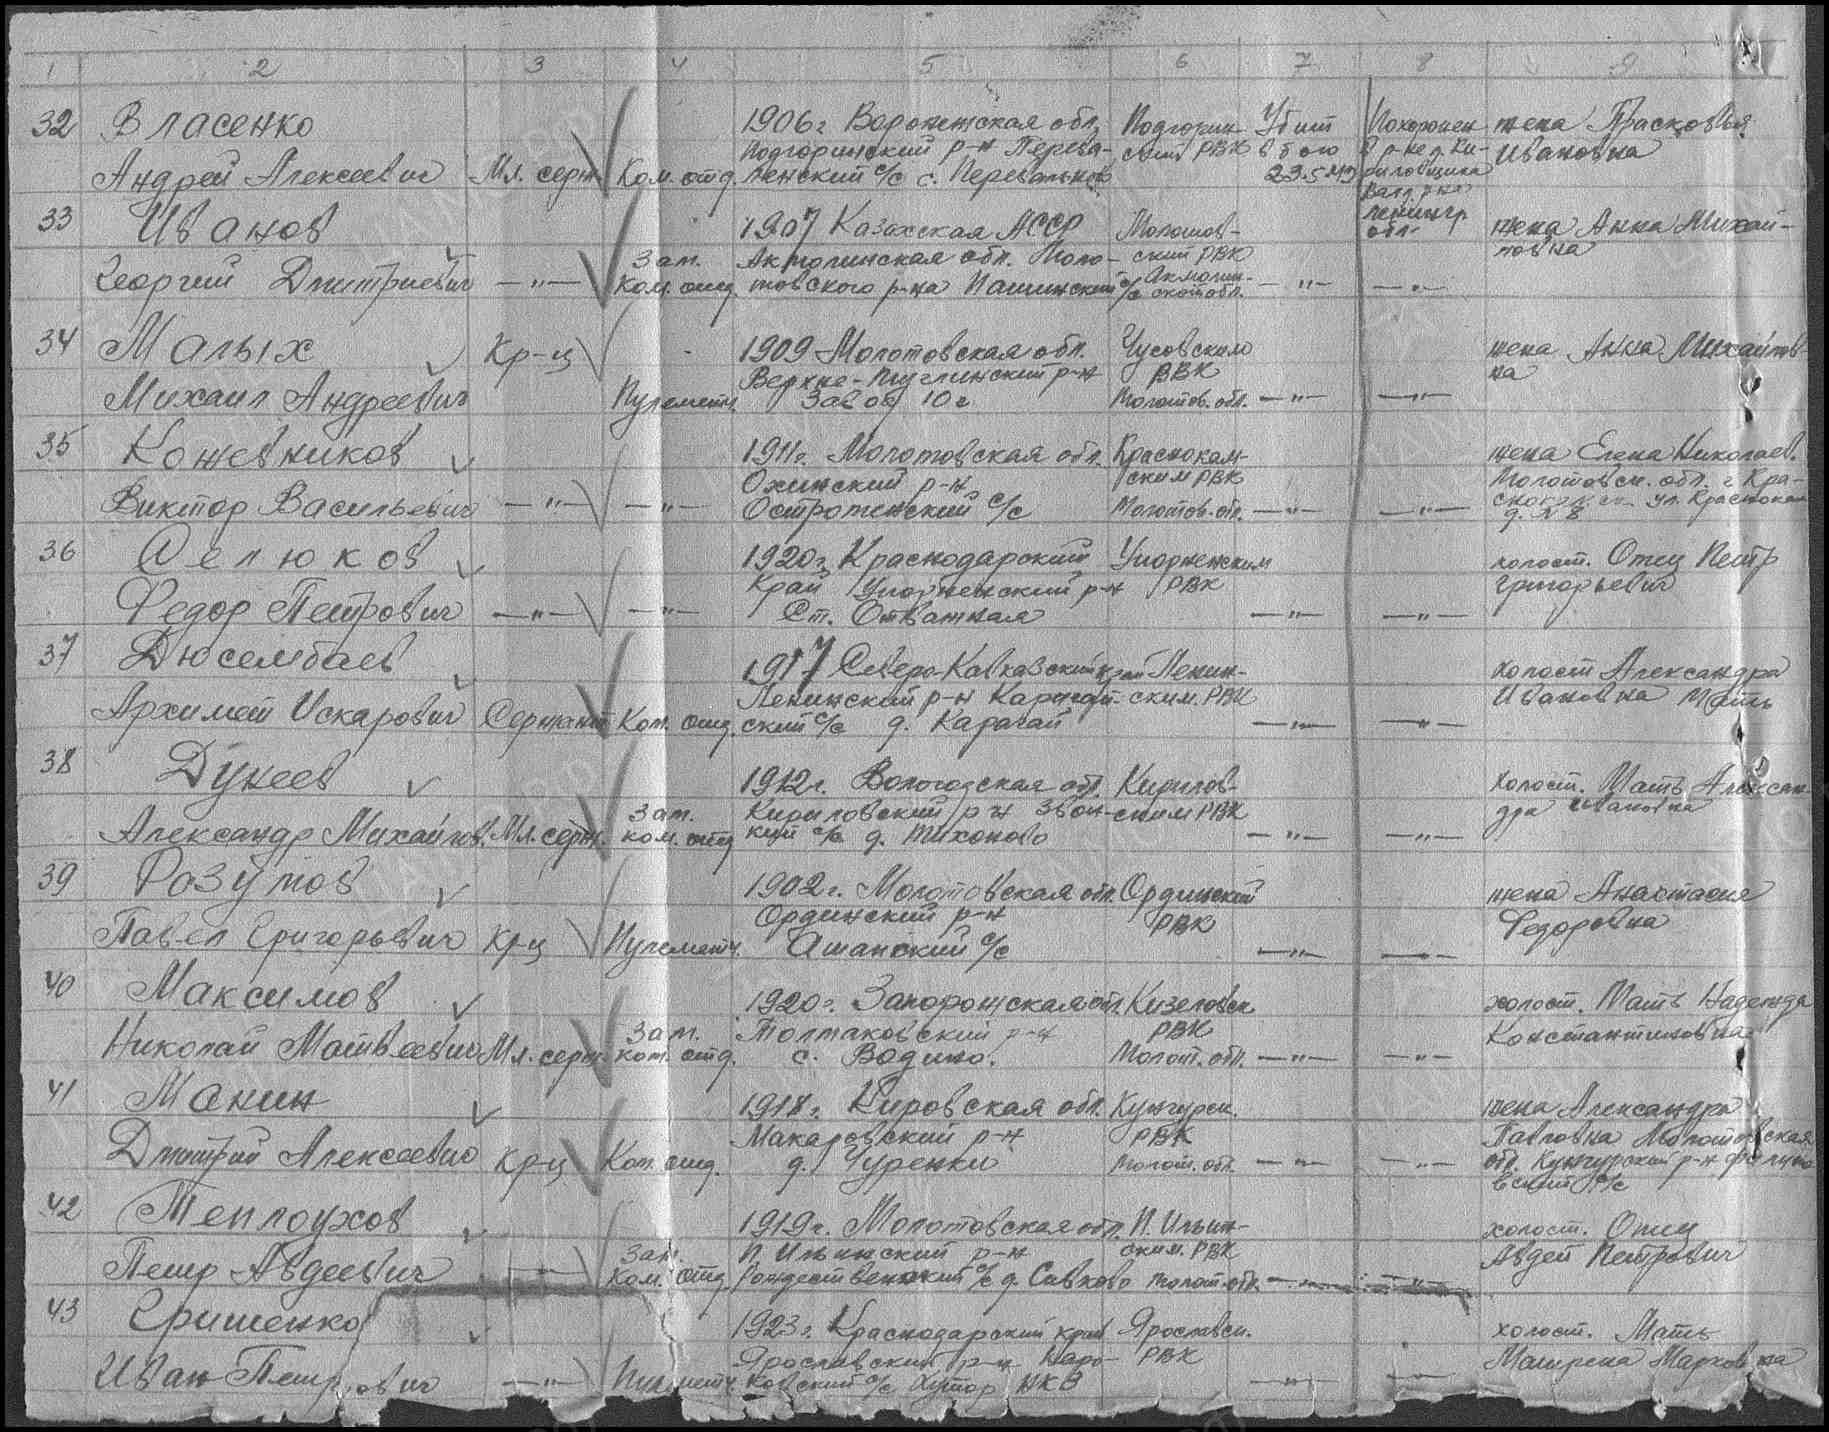 1 2 3 4 5 6 7 8 9
32 Власенко
Андрей Алексеевич
Мл. серж.
Ком. отд.
1906г Воронежская обл.
Подгоринский р-н Перева-
ленский с/с с. Перевальное
Подгорин-
ский РВК
Убит
в бою
23.5.43
Похоронен
в р-не д. Ки-
риловщина
Валд. р-на
Ленингр.
обл.
жена Прасковья
Ивановна
33 Иванов
Георгий Дмитриевич
—"—
Зам.
Ком. отд.
1907 Казахская АССР
Акмолинская обл. Моло-
товского р-на
с/с
Молотов-
ский РВК
Акмолин-
ской обл.
—"—
—"—
жена Анна Михай-
ловна
34 Малых
Михаил Андреевич
Кр-ц
Пулеметч.
1909 Молотовская обл.
Верхне- р-н
Завод 10 г
Чусовским
РВК
Молотов. обл.
—"—
—"—
жена Анна Михайлов-
на
35 Кожевников
Виктор Васильевич
—"—
—"—
1911г. Молотовская обл.
Оханский р-н
Острожский с/с
Краснокам-
ским РВК
Молотов. обл.
—"—
—"—
жена Елена Николаев.
Молотовск. обл. г. Кра-
снокамск ул. Краснокам
д. № 8
36 Селюков
Федор Петрович
—"—
—"—
1920г. Краснодарский
Край Упорненский р-н
Ст. Отважная
Упорненским
РВК
—"—
—"—
холост. Отец Петр
Григорьевич
37 Дюсембаев
Архимет Искарович
Сержант
Ком. отд.
1917 Северо-Кавказский край
Ленинский р-н Карагай-
ский с/с д. Карагай
Ленин-
ским. РВК
—"—
—"—
холост Александра
Ивановна Мать
38 Дунеев
Александр Михайлов.
Мл. серж.
Зам.
ком. отд
1912г. Вологодская обл.
Кириловский р-н Звон-
кий с/с д. Тихоново
Кирилов-
ским РВК
—"—
—"—
холост. Мать Алексан-
дра Ивановна
39 Разумов
Павел Григорьевич
Кр-ц
Пулеметч.
1902г. Молотовская обл.
Ординский р-н
Ашапский с/с
Ординский
РВК
—"—
—"—
жена Анастасия
Федоровна
40 Максимов
Николай Матвеевич
Мл. серж.
Зам.
ком. отд.
1920г. Запорожская обл.
Толмаковский р-н
с. Водино.
Кизеловск
РВК
Молот. обл.
—"—
—"—
холост. Мать Надежда
Константиновна
41 Манин
Дмитрий Алексеевич
Кр-ц
Ком. отд.
1918г. Кировская обл.
Макаровский р-н
д. Чуренки
Кунгурск.
РВК
Молот. обл.
—"—
—"—
жена Александра
Павловна Молотовская
обл. Кунгурский р-н
вский с/с
42 Теплоухов
Петр Авдеевич
—"—
Зам.
Ком. отд.
1919г. Молотовская обл.
П. Ильинский р-н
Рождественский с/с д. Савково
П. Ильин-
ским. РВК
Молот. обл.
—"—
—"—
холост. Отец
Авдей Петрович
43 Гришенко
Иван Петрович
—"—
Пулеметч.
1923г. Краснодарский край
Ярославский р-н
с/с Хутор НКВ
Ярославск.
РВК
—"—
—"—
холост. Мать
Матрена Марковна